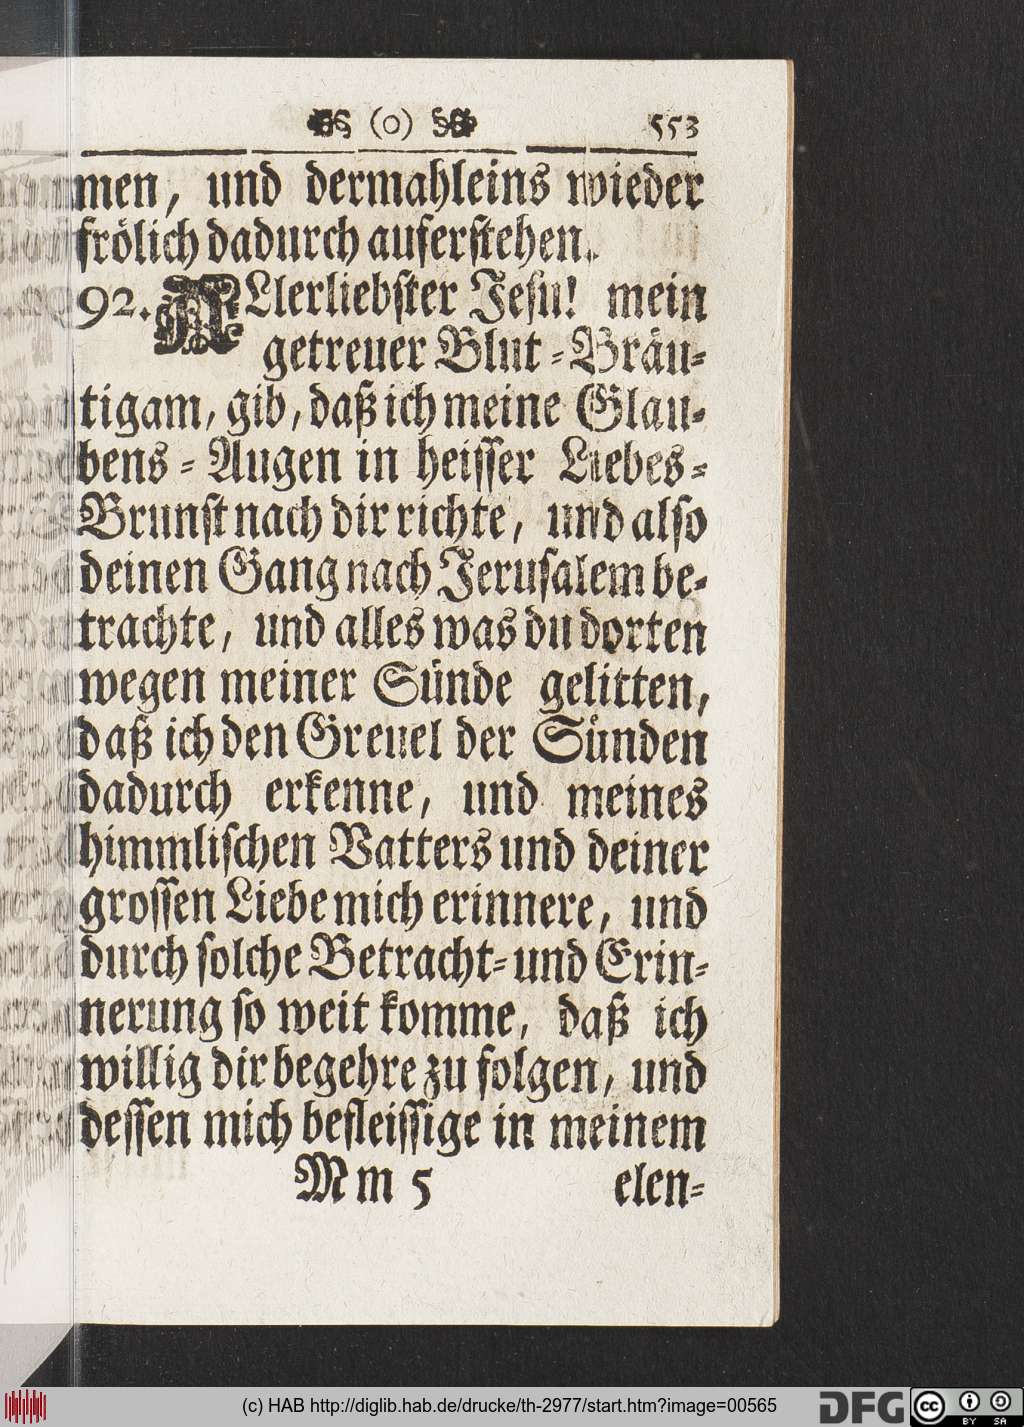 (o) 553
men, und dermahleins wieder
frölich dadurch auferstehen.
92. ALlerliebster Jesu! mein
getreuer Blut-Bräu-
tigam, gib, daß ich meine Glau-
bens-Augen in heisser Liebes-
Brunst nach dir richte, und also
deinen Gang nach Jerusalem be-
trachte, und alles was du dorten
wegen meiner Sünde gelitten,
daß ich den Greuel der Sünden
dadurch erkenne, und meines
himmlischen Vatters und deiner
grossen Liebe mich erinnere, und
durch solche Betracht- und Erin-
nerung so weit komme, daß ich
willig dir begehre zu folgen, und
dessen mich befleissige in meinem
Mm 5 elen-
(c) HAB http://diglib.hab.de/drucke/th-2977/start.htm?image=00565
DFG cc BY SA